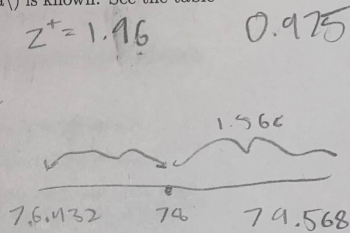 is known. See the table
z* = 1.96 0.975
1.568
76.432 78 79.568